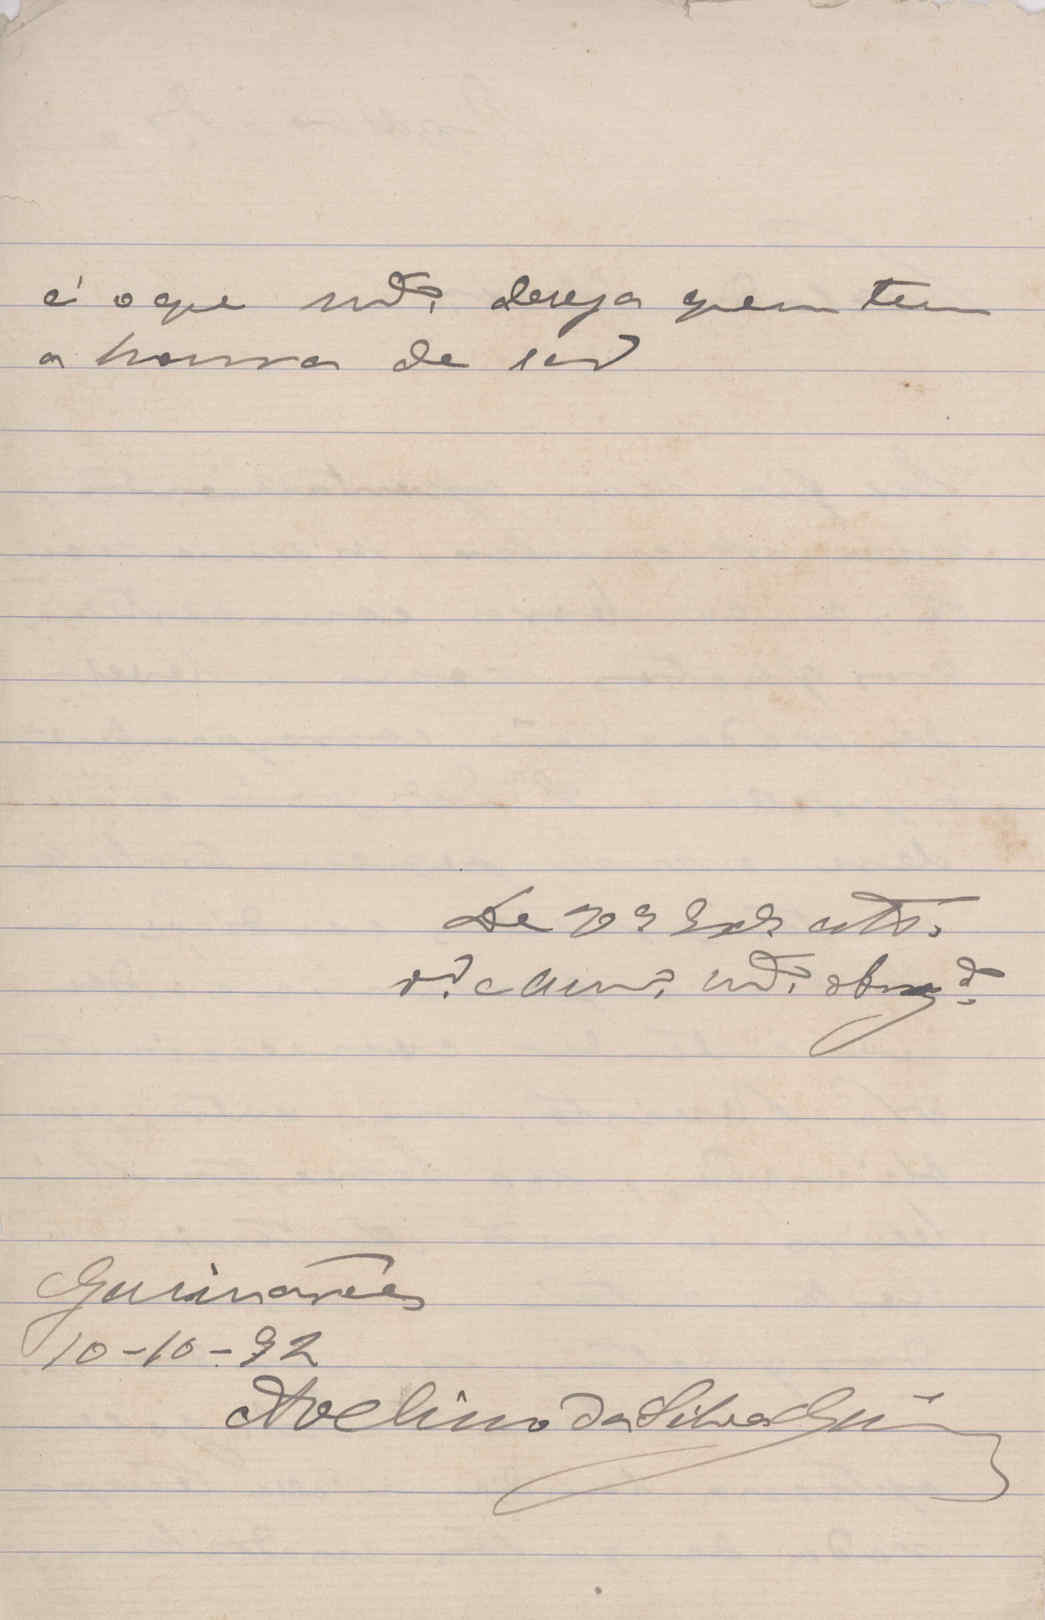 é o que md. deseja quem tem
a honra de ser
De V. Exª. attº.
vor. e am. md. obrgd.
Guimarães
10-10-92
Avelino da Silva Guim